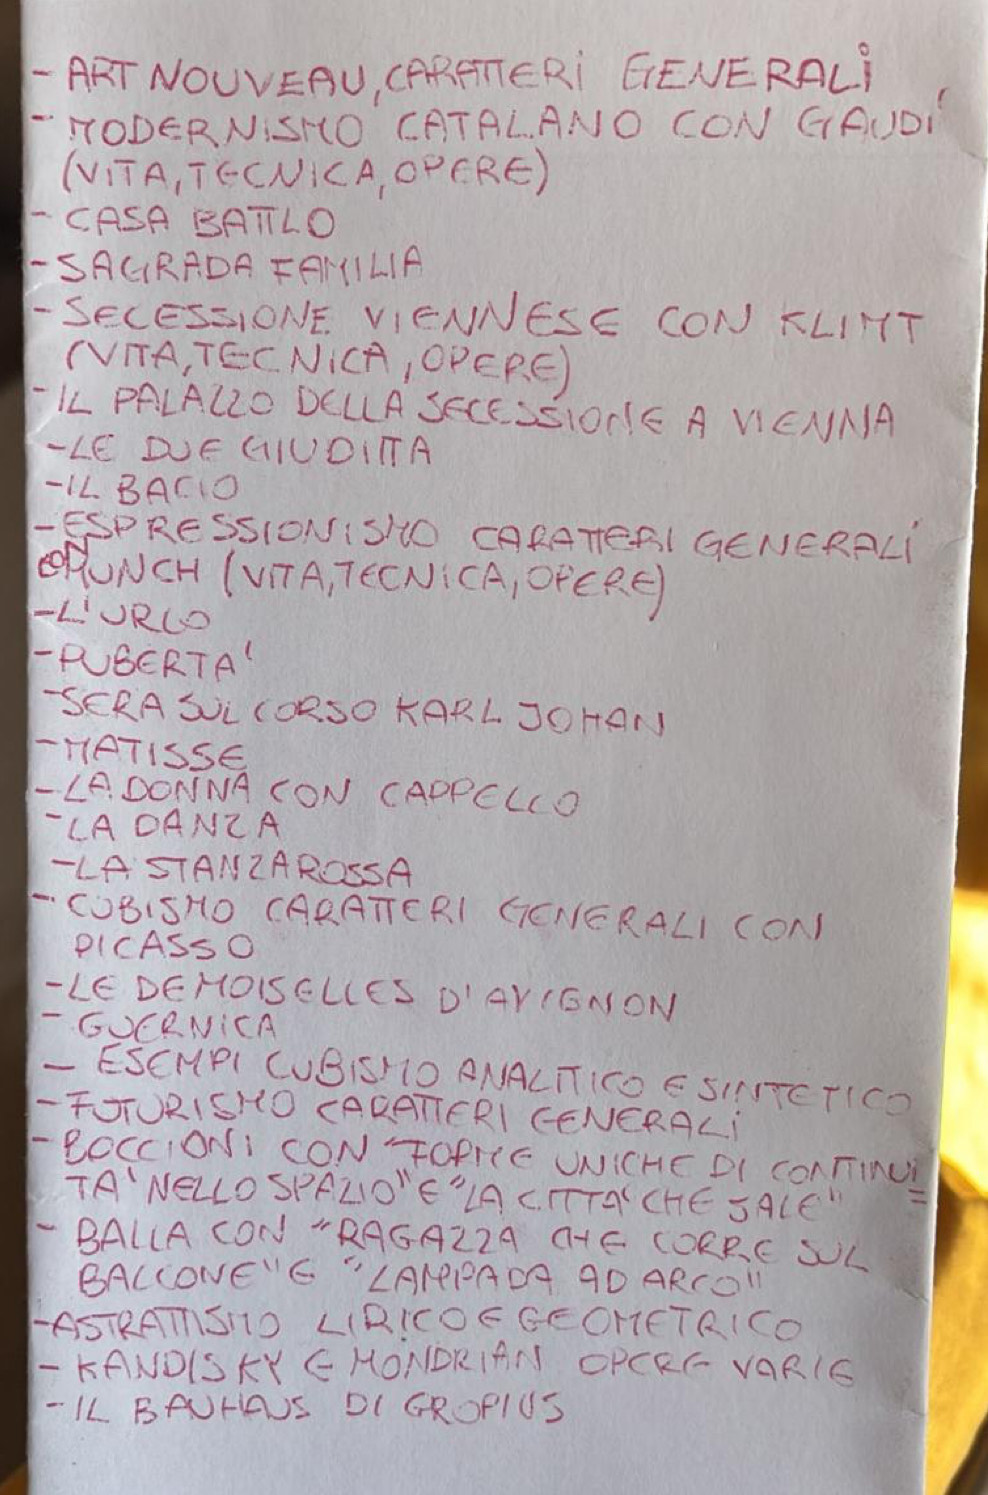 - ART NOUVEAU, CARATTERI GENERALI
- MODERNISMO CATALANO CON GAUDI'
(VITA, TECNICA, OPERE)
- CASA BATTLO
- SAGRADA FAMILIA
- SECESSIONE VIENNESE CON KLIMT
(VITA, TECNICA, OPERE)
- IL PALAZZO DELLA SECESSIONE A VIENNA
- LE DUE GIUDITTA
- IL BACIO
- ESPRESSIONISMO CARATTERI GENERALI
MUNCH (VITA, TECNICA, OPERE)
- L'URLO
- PUBERTA'
- SERA SUL CORSO KARL JOHAN
- MATISSE
- LA DONNA CON CAPPELLO
- LA DANZA
- LA STANZA ROSSA
- CUBISMO CARATTERI GENERALI CON
PICASSO
- LE DEMOISELLES D'AVIGNON
- GUERNICA
- ESEMPI CUBISMO ANALITICO E SINTETICO
- FUTURISMO CARATTERI GENERALI
- BOCCIONI CON "FORME UNICHE DI CONTINUI=
TA' NELLO SPAZIO" E "LA CITTA' CHE SALE"
- BALLA CON "RAGAZZA CHE CORRE SUL
BALCONE" E "LAMPADA AD ARCO"
- ASTRATTISMO LIRICO E GEOMETRICO
- KANDISKY E MONDRIAN OPERE VARIE
- IL BAUHAUS DI GROPIUS